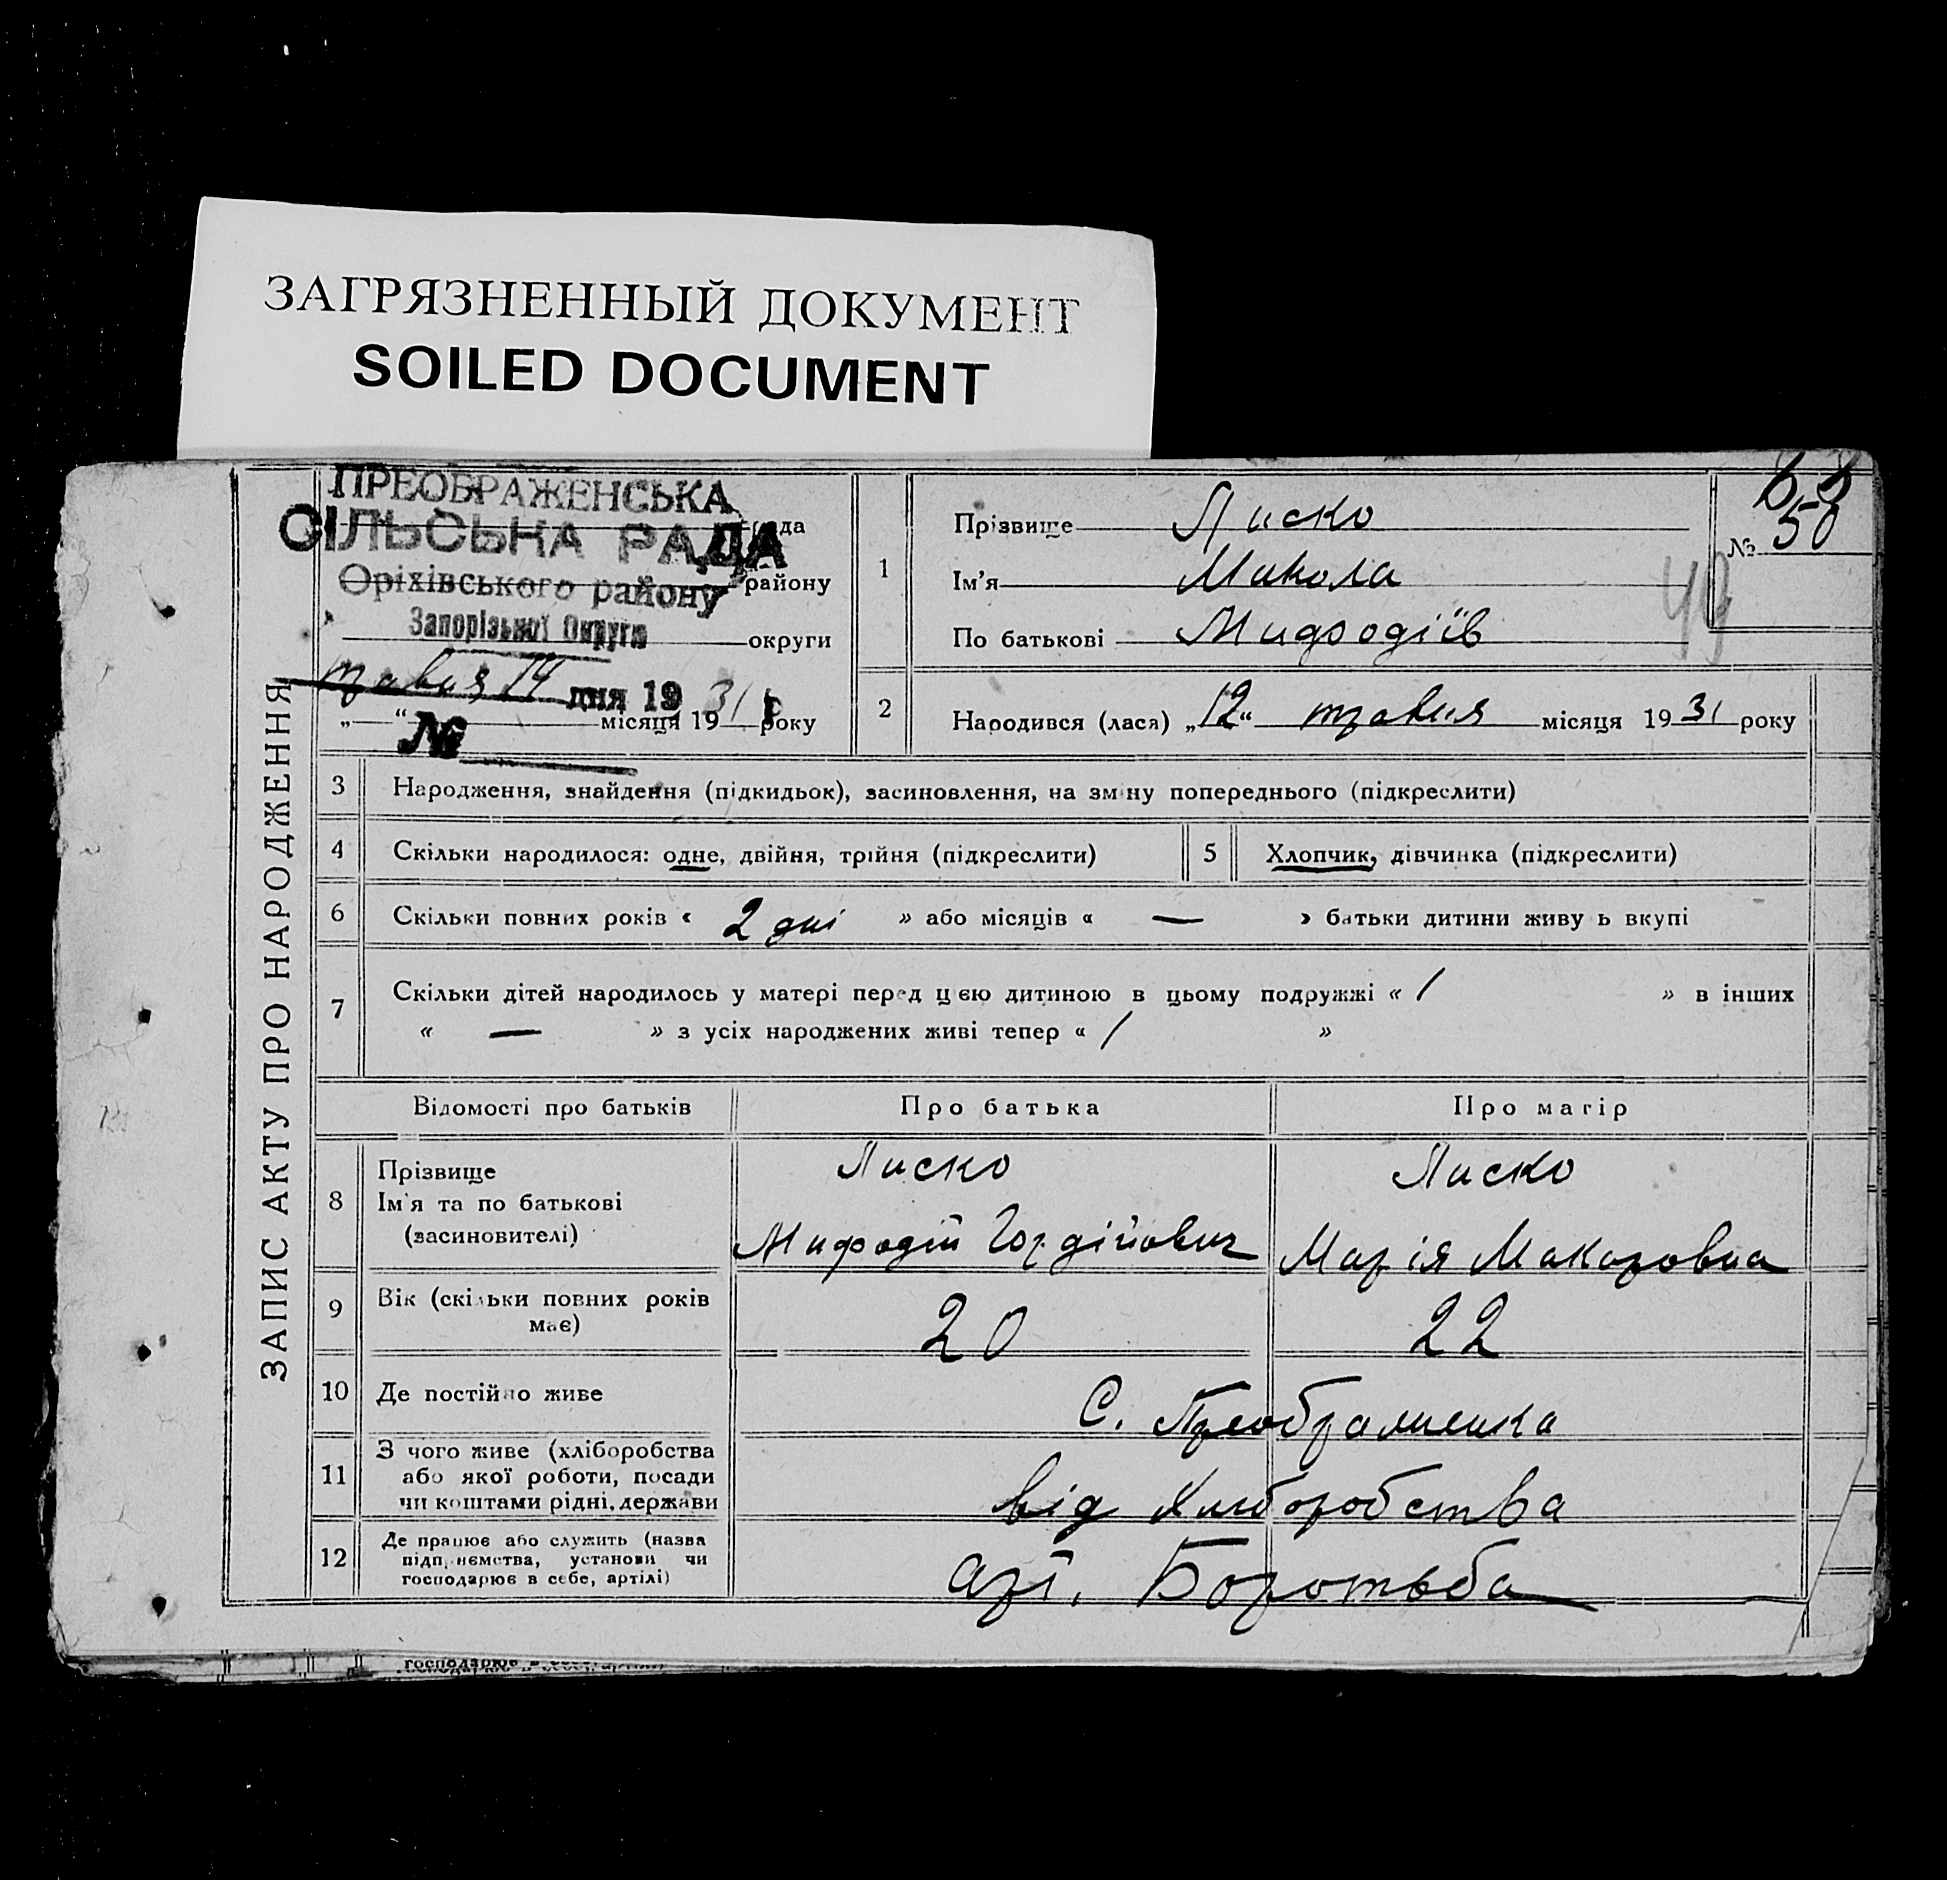 ЗАГРЯЗНЕННЫЙ ДОКУМЕНТ
SOILED DOCUMENT
ЗАПИС АКТУ ПРО НАРОДЖЕННЯ
ПРЕОБРАЖЕНСЬКА
СІЛЬСЬКА РАДА рада
Оріхівського району району
Запорізької Округи округи
травня 14 дня 19 31 р
„ “ місяця 19 року
№
1
Прізвище Лиско
Ім'я Микола
По батькові Мифодіїв
№ 50
49
2 Народився (лася) „12“ травня місяця 19 31 року
3 Народження, знайдення (підкидьок), засиновлення, на зміну попереднього (підкреслити)
4 Скільки народилося: одне, двійня, трійня (підкреслити)
5 Хлопчик, дівчинка (підкреслити)
6 Скільки повних років « 2 дні » або місяців « — » батьки дитини живуть вкупі
7 Скільки дітей народилось у матері перед цією дитиною в цьому подружжі « 1 » в інших
« — » з усіх народжених живі тепер « 1 »
Відомості про батьків Про батька Про матір
8 Прізвище
Ім'я та по батькові
(засиновителі)
Лиско
Мифодій Гордійович
Лиско
Марія Макаровна
9 Вік (скільки повних років
має)
20 22
10 Де постійно живе
С. Преображенка
11 З чого живе (хліборобства
або якої роботи, посади
чи коштами рідні, держави
від Хліборобства
12 Де працює або служить (назва
підприємства, установи чи
господарює в себе, артілі)
арт. Боротьба